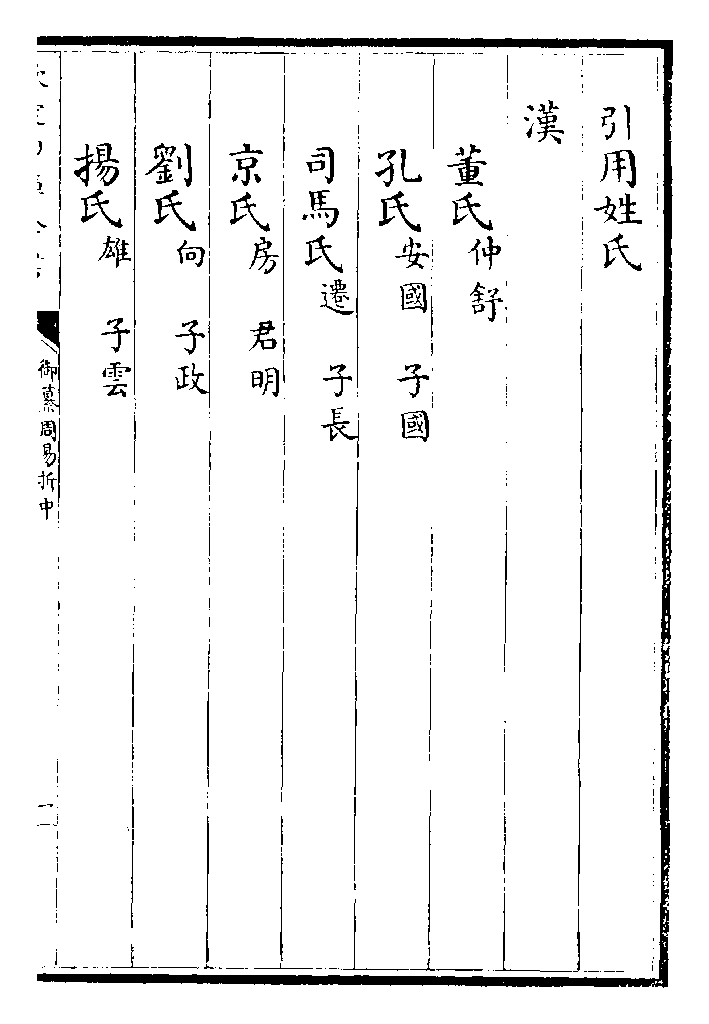 引用姓氏
漢
董氏仲舒
孔氏安國 子國
司馬氏遷 子長
京氏房 君明
劉氏向 子政
揚氏雄 子雲
御纂周易折中